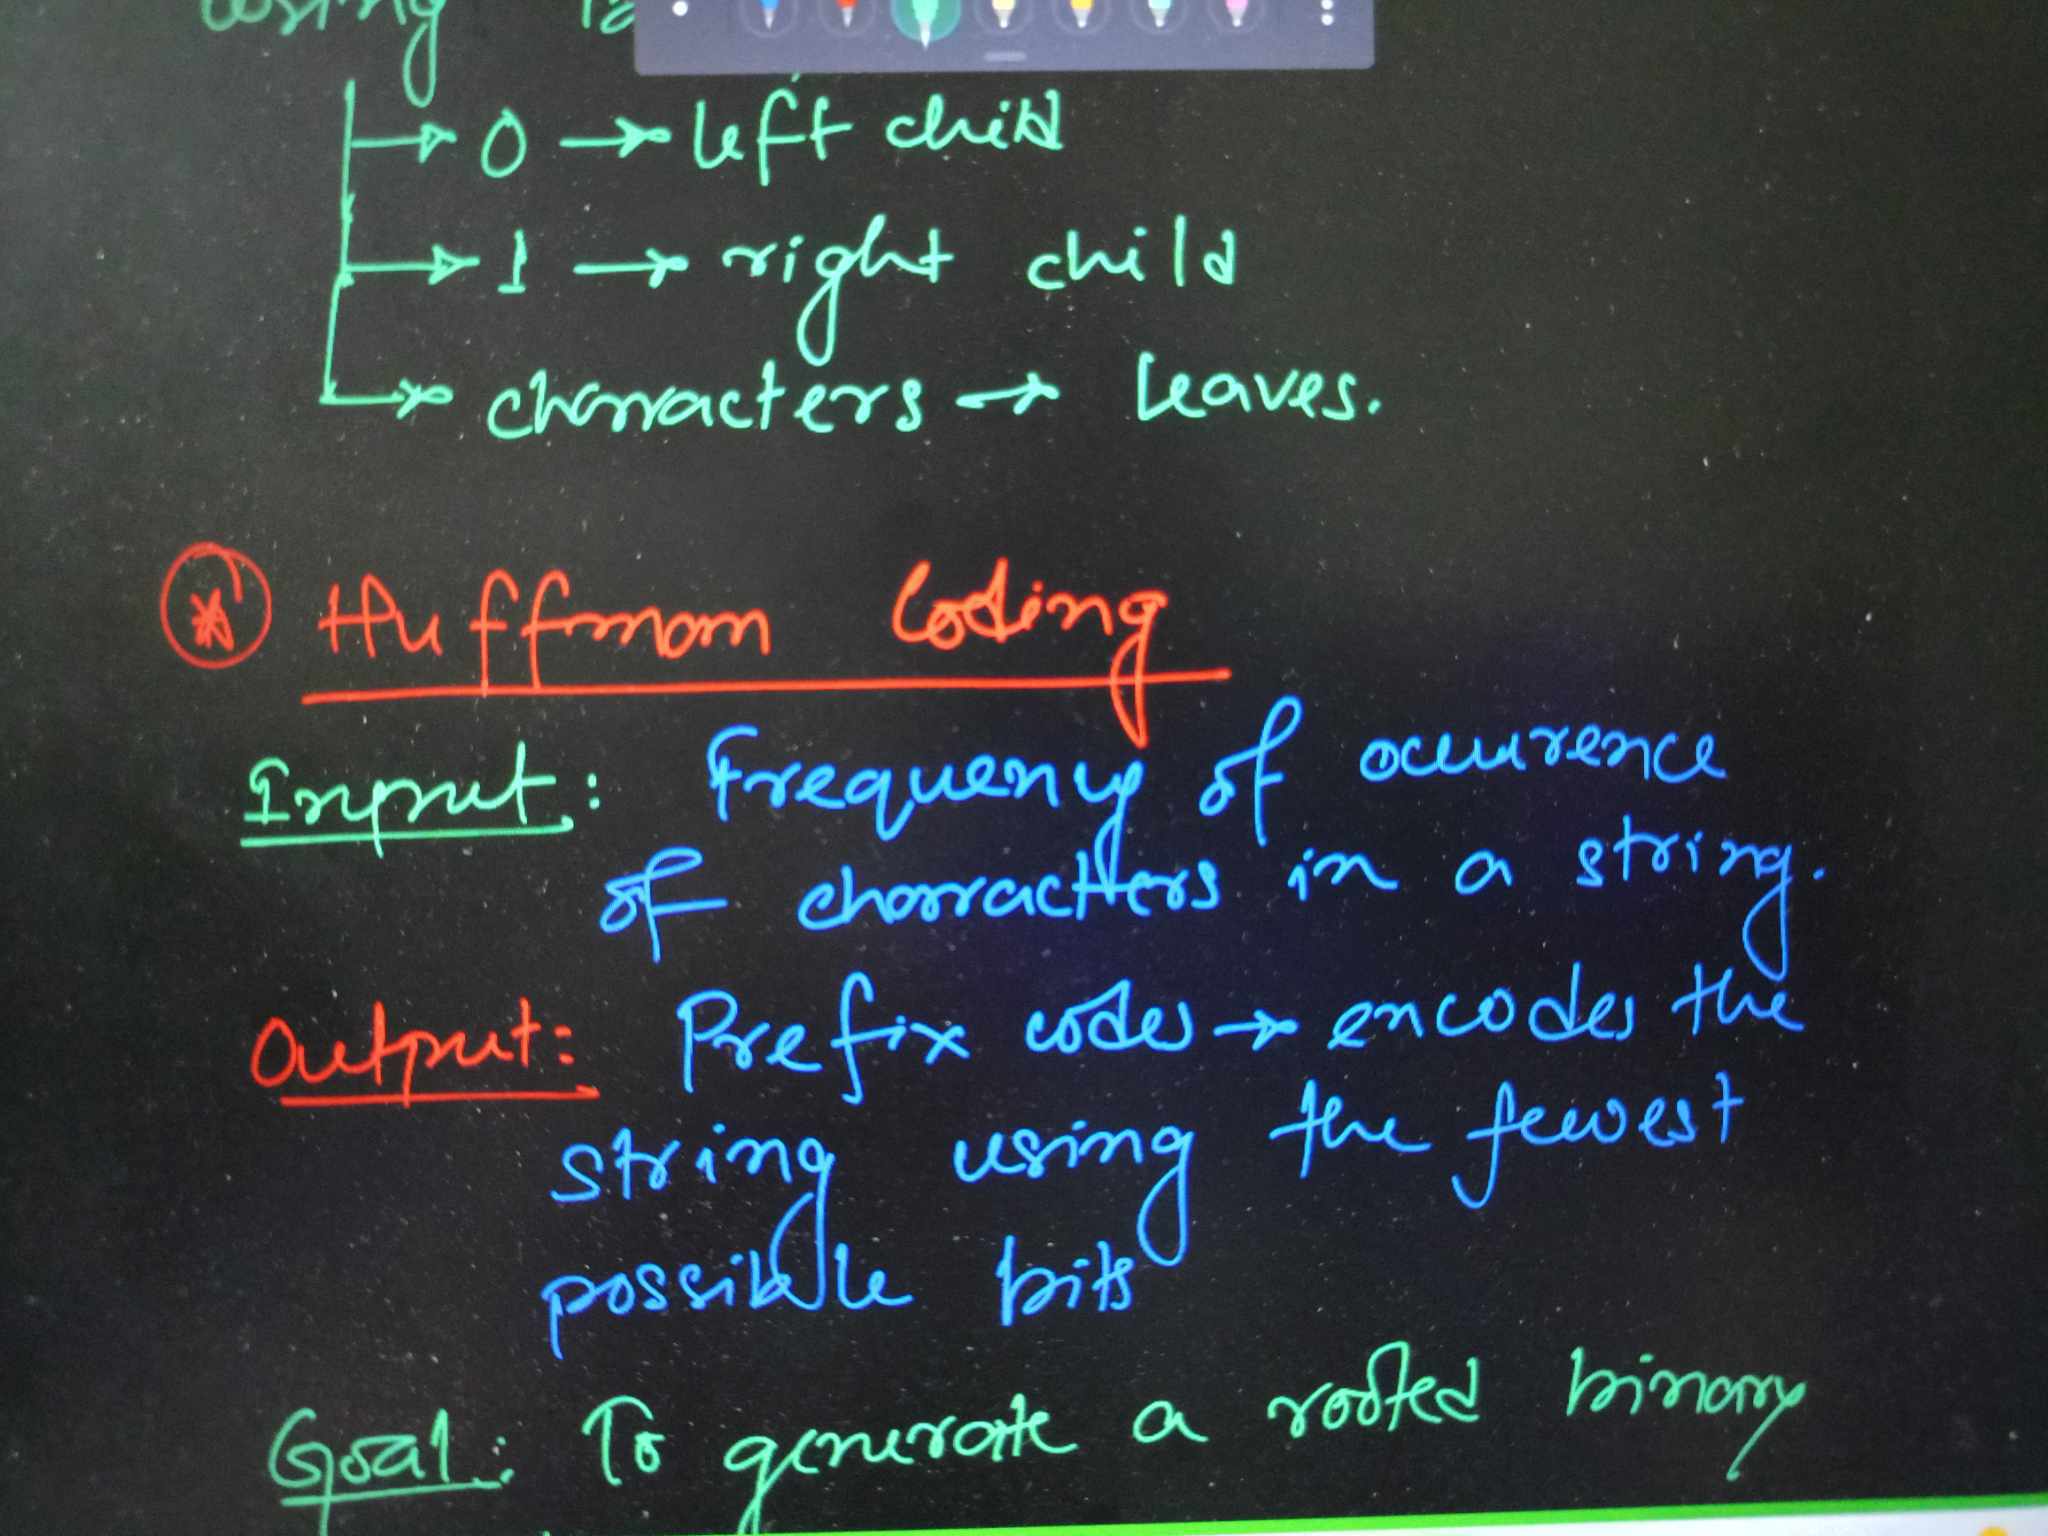 using
→ 0 → left child
→ 1 → right child
→ characters → leaves.
* Huffman Coding
Input: Frequency of occurrence
of characters in a string.
Output: Prefix codes → encodes the
string using the fewest
possible bits
Goal: To generate a rooted binary